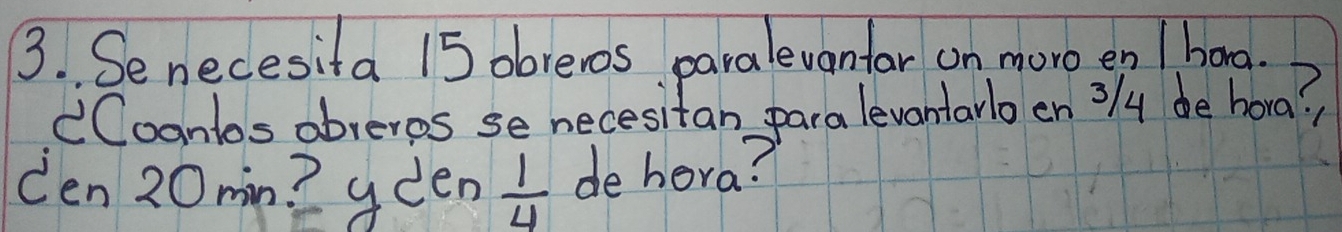 3. Se necesita 15 obreros paralevantar un muro en 1 hora.
¿Cuantos obreros se necesitan para levantarlo en 3/4 de hora?,
¿en 20 min? y ¿en 1/4 de hora?